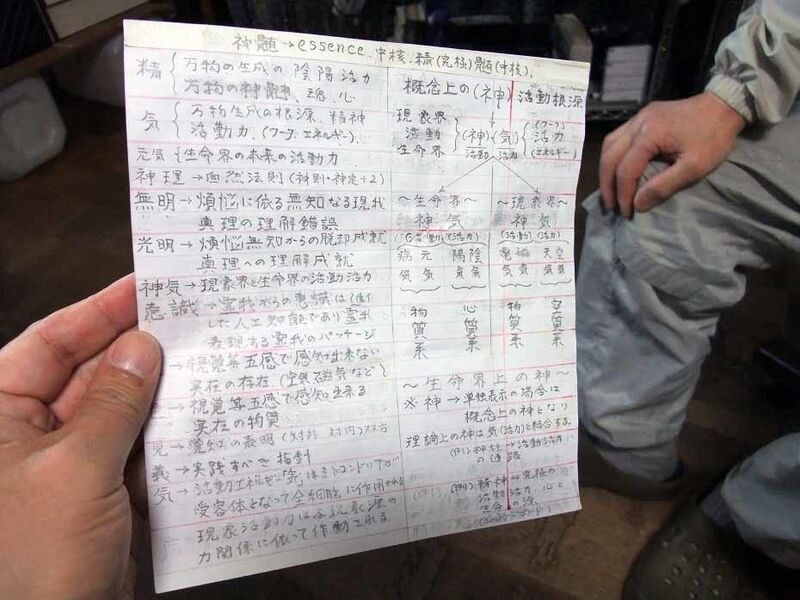 神髄→essence.中核.精(究極)髄(中核).
精 万物の生成の陰陽活力
万物の神髄、魂、心
気 万物生成の根源、精神
活動力、(ワーク.エネルギー).
元気 生命界の本来の活動力
神理→自然法則(神則・神定+2)
無明→煩悩に依る無知なる現我
真理の理解錯誤
光明→煩悩無知からの脱却成就
真理への理解成就
神気→現象界と生命界の活動活力
意識→
した人工知能であり
表現する我のパッケージ
→視覚等五感で感知出来ない
実在の存在(空気磁気など)
視覚等五感で感知出来る
実在の物質
見→覚知の表明(対外、対内)双方
義→実践すべき指針
気→活動エネルギー気はミトコンドリアが
受容体となって全細胞に作用される
現象活動力は各現象源の
力関係に依って作動される
概念上の(神)活動根源
現象界
活動
生命界
(神)(気)
活動 活力
(ワーク)
活力
(エネルギー)
~生命界~
神気
(活動)(活力)
病元 陽陰
気気 気気
物質系 心質系
~現象界~
神気
(活動)(活力)
電磁 天空
気気 気気
物質系 空質系
~生命界上の神~
※神→単独表示の場合は
概念上の神となり
理論上の神は気(活力)と結合する。
(例)神経→活動活力
の通路
(例)精神が究極の
活動活力 心と
生命の源